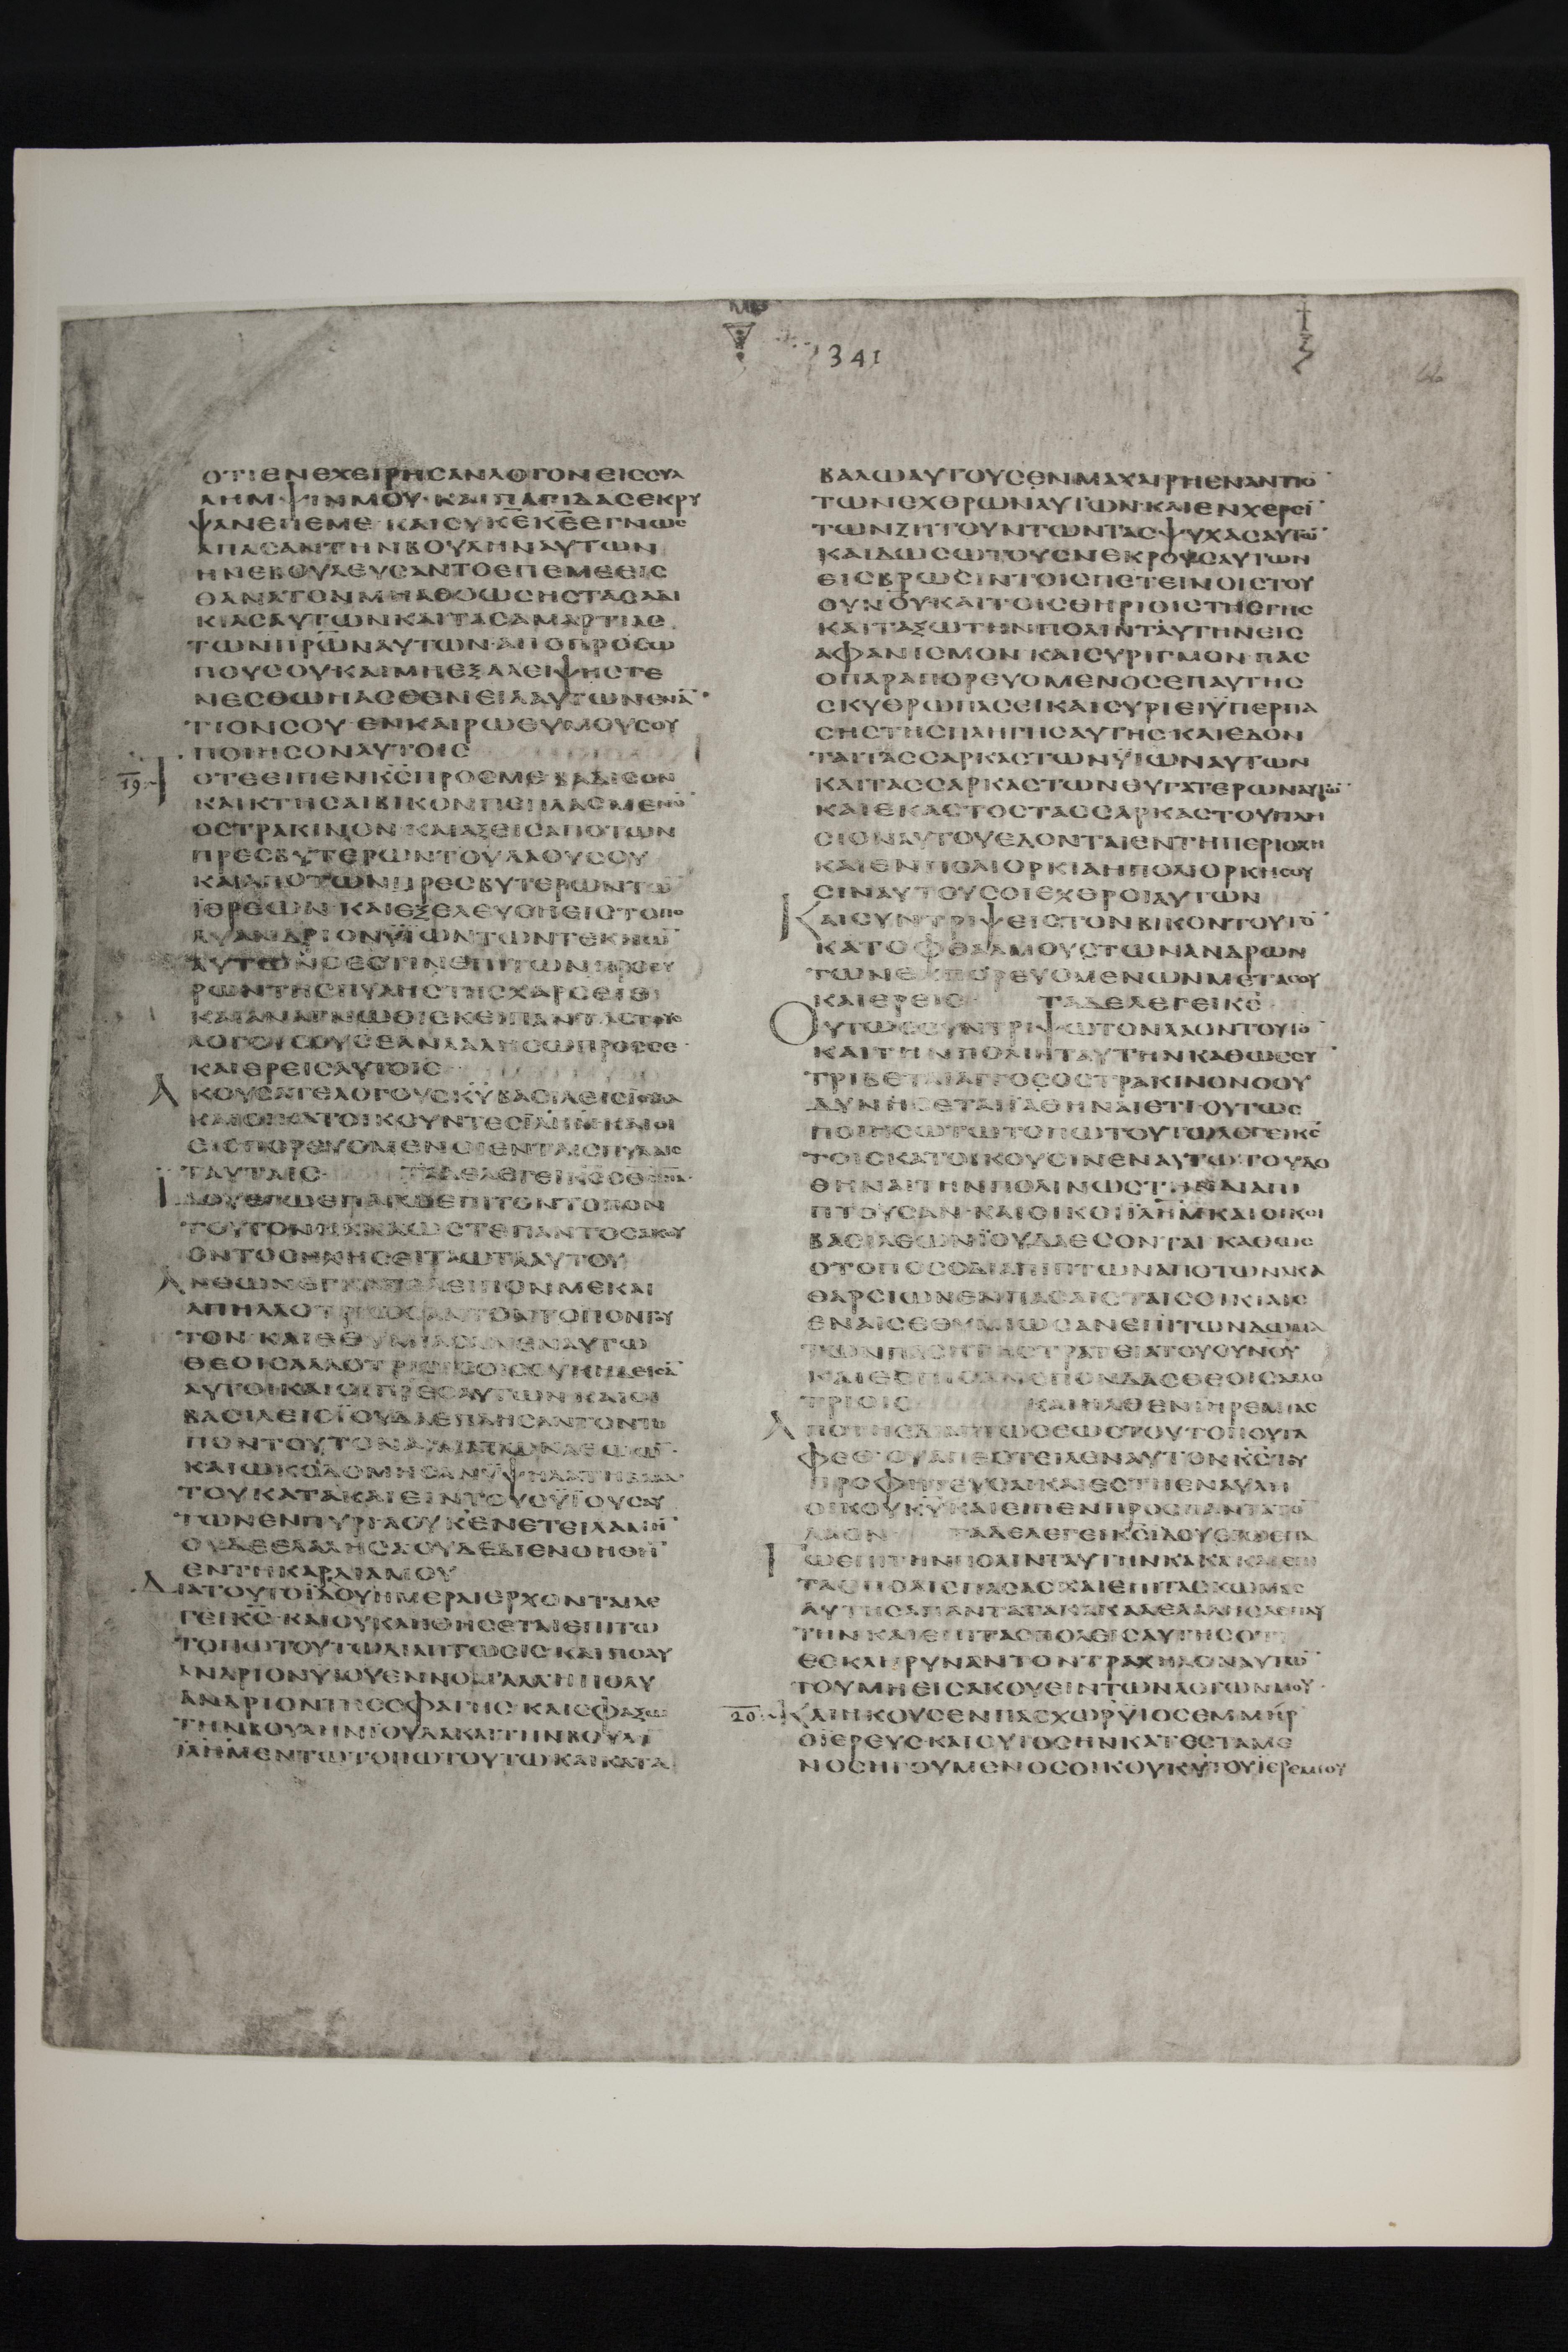 341
ΟΤΙΕΝΕΧΕΙΡΗCΑΝΛΟΓΟΝΕΙCCΥΛ
ΛΗΜΨΙΝΜΟΥ·ΚΑΙΠΑΓΙΔΑCΕΚΡΥ
ΨΑΝΕΠΕΜΕ·ΚΑΙCΥΚ̅Ε̅Κ̅Ε̅ΕΓΝΩC
ΑΠΑCΑΝΤΗΝΒΟΥΛΗΝΑΥΤΩΝ
ΗΝΕΒΟΥΛΕΥCΑΝΤΟΕΠΕΜΕΕΙC
ΘΑΝΑΤΟΝΜΗΑΘΟΩCΗCΤΑCΑΔΙ
ΚΙΑCΑΥΤΩΝΚΑΙΤΑCΑΜΑΡΤΙΑC
ΤΩΝΠΡ̅Ω̅ΝΑΥΤΩΝ·ΑΠΟΠΡΟCΩ
ΠΟΥCΟΥΚΑΙΜΗΕΞΑΛΕΙΨΗCΓΕ
ΝΕCΘΩΗΑCΘΕΝΕΙΑΑΥΤΩΝΕΝΑ̅
ΤΙΟΝCΟΥ·ΕΝΚΑΙΡΩΘΥΜΟΥCΟΥ
ΠΟΙΗCΟΝΑΥΤΟΙC
19 ΤΟΤΕΕΙΠΕΝΚ̅C̅ΠΡΟCΜΕΒΑΔΙCΟΝ
ΚΑΙΚΤΗCΑΙΒΙΚΟΝΠΕΠΛΑCΜΕΝΟ̅
ΟCΤΡΑΚΙΝΟΝ·ΚΑΙΑΞΕΙCΑΠΟΤΩΝ
ΠΡΕCΒΥΤΕΡΩΝΤΟΥΛΑΟΥCΟΥ
ΚΑΙΑΠΟΤΩΝΠΡΕCΒΥΤΕΡΩΝΤΩ̅
ΪΕΡΕΩΝ·ΚΑΙΕΞΕΛΕΥCΗΕΙCΤΟΠΟ
ΛΥΑΝΔΡΙΟΝΫΪΩΝΤΩΝΤΕΚΝΩ̅
ΑΥΤΩΝΟΕCΤΙΝΕΠΙΤΩΝΠΡΟΘΥ
ΡΩΝΤΗCΠΥΛΗCΤΗCΧΑΡCΕΙΘ
ΛΟΓΟΥCΟΥCΕΑΝΛΑΛΗCΩΠΡΟCCΕ
ΚΑΙΕΡΕΙCΑΥΤΟΙC
ΑΚΟΥCΑΤΕΛΟΓΟΥCΚ̅Υ̅ΒΑCΙΛΕΙCΪΟΥΔΑ
ΚΑΙΟΙΚΑΤΟΙΚΟΥΝΤΕCΪΛ̅Η̅Μ̅ΚΑΙΟΙ
ΕΙCΠΟΡΕΥΟΜΕΝΟΙΕΝΤΑΙCΠΥΛΑΙC
ΤΑΥΤΑΙC ΤΑΔΕΛΕΓΕΙΚ̅C̅ΟΘ̅C̅
ΙΔΟΥΕΓΩΕΠΑΓΩΕΠΙΤΟΝΤΟΠΟΝ
ΤΟΥΤΟΝΚΑΚΑΩCΤΕΠΑΝΤΟCΑΚΟΥ
ΟΝΤΟCΗΧΗCΕΙΤΑΩΤΑΑΥΤΟΥ
ΑΝΘΩΝΕΓΚΑΤΕΛΕΙΠΟΝΜΕΚΑΙ
ΑΠΗΛΛΟΤΡΙΩCΑΝΤΟΝΤΟΠΟΝΤΟΥ
ΤΟΝ·ΚΑΙΕΘΥΜΙΑCΑΝΕΝΑΥΤΩ
ΘΕΟΙCΑΛΛΟΤΡΙΟΙCΟΙCΟΥΚΗΔΕΙCΑ̅
ΑΥΤΟΙΚΑΙΟΙΠΡΕCΑΥΤΩΝΚΑΙΟΙ
ΒΑCΙΛΕΙCΪΟΥΔΑΕΠΛΗCΑΝΤΟΝΤΟ
ΠΟΝΤΟΥΤΟΝΑΙΜΑΤΩΝΑΘΩΩ̅
ΚΑΙΩΚΟΔΟΜΗCΑΝΫΨΗΛΑΤΗΒΑΑΛ
ΤΟΥΚΑΤΑΚΑΙΕΙΝΤΟΥCΫΪΟΥCΑΥ
ΤΩΝΕΝΠΥΡΙΑΟΥΚΕΝΕΤΕΙΛΑΜΗ̅
ΟΥΔΕΕΛΑΛΗCΑΟΥΔΕΔΙΕΝΟΗΘΗ̅
ΕΝΤΗΚΑΡΔΙΑΜΟΥ
ΔΙΑΤΟΥΤΟΪΔΟΥΗΜΕΡΑΙΕΡΧΟΝΤΑΙΛΕ
ΓΕΙΚ̅C̅·ΚΑΙΟΥΚΛΗΘΗCΕΤΑΙΕΠΙΤΩ
ΤΟΠΩΤΟΥΤΩΔΙΑΠΤΩCΙC·ΚΑΙΠΟΛΥ
ΑΝΔΡΙΟΝΥΙΟΥΕΝΝΟΜ·ΑΛΛΗΠΟΛΥ
ΑΝΔΡΙΟΝΤΗCCΦΑΓΗC·ΚΑΙCΦΑΞΩ
ΤΗΝΒΟΥΛΗΝΪΟΥΔΑΚΑΙΤΗΝΒΟΥΛΗ̅
ΪΛ̅Η̅Μ̅ΕΝΤΩΤΟΠΩΤΟΥΤΩΚΑΙΚΑΤΑ
ΒΑΛΩΑΥΤΟΥCΕΝΜΑΧΑΙΡΗΕΝΑΝΤΙΟ̅
ΤΩΝΕΧΘΡΩΝΑΥΤΩΝ·ΚΑΙΕΝΧΕΡCΙ̅
ΤΩΝΖΗΤΟΥΝΤΩΝΤΑCΨΥΧΑCΑΥΤΩ̅
ΚΑΙΔΩCΩΤΟΥCΝΕΚΡΟΥCΑΥΤΩΝ
ΕΙCΒΡΩCΙΝΤΟΙCΠΕΤΕΙΝΟΙCΤΟΥ
ΟΥΝΟΥΚΑΙΤΟΙCΘΗΡΙΟΙCΤΗCΓΗC
ΚΑΙΤΑΞΩΤΗΝΠΟΛΙΝΤΑΥΤΗΝΕΙC
ΑΦΑΝΙCΜΟΝ·ΚΑΙCΥΡΙΓΜΟΝ·ΠΑC
ΟΠΑΡΑΠΟΡΕΥΟΜΕΝΟCΕΠΑΥΤΗC
CΚΥΘΡΩΠΑCΕΙΚΑΙCΥΡΙΕΙΫΠΕΡΠΑ
CΗCΤΗCΠΛΗΓΗCΑΥΤΗC·ΚΑΙΕΔΟΝ
ΤΑΙΤΑCCΑΡΚΑCΤΩΝΫΙΩΝΑΥΤΩΝ
ΚΑΙΤΑCCΑΡΚΑCΤΩΝΘΥΓΑΤΕΡΩΝΑΥΤΩ̅
ΚΑΙΕΚΑCΤΟCΤΑCCΑΡΚΑCΤΟΥΠΛΗ
CΙΟΝΑΥΤΟΥΕΔΟΝΤΑΙΕΝΤΗΠΕΡΙΟΧΗ
ΚΑΙΕΝΠΟΛΙΟΡΚΙΑΗΠΟΛΙΟΡΚΗCΟΥ
CΙΝΑΥΤΟΥCΟΙΕΧΘΡΟΙΑΥΤΩΝ
ΚΑΙCΥΝΤΡΙΨΕΙCΤΟΝΒΙΚΟΝΤΟΥΤΟ̅
ΚΑΤΟΦΘΑΛΜΟΥCΤΩΝΑΝΔΡΩΝ
ΤΩΝΕΚΠΟΡΕΥΟΜΕΝΩΝΜΕΤΑCΟΥ
ΚΑΙΕΡΕΙC ΤΑΔΕΛΕΓΕΙΚ̅C̅
ΟΥΤΩCCΥΝΤΡΙΨΩΤΟΝΛΑΟΝΤΟΥΤΟ̅
ΚΑΙΤΗΝΠΟΛΙΝΤΑΥΤΗΝΚΑΘΩCCΥ̅
ΤΡΙΒΕΤΑΙΑΓΓΟCΟCΤΡΑΚΙΝΟΝΟΟΥ
ΔΥΝΗCΕΤΑΙΪΑΘΗΝΑΙΕΤΙ·ΟΥΤΩC
ΠΟΙΗCΩΤΩΤΟΠΩΤΟΥΤΩΛΕΓΕΙΚ̅C̅
ΤΟΙCΚΑΤΟΙΚΟΥCΙΝΕΝΑΥΤΩ·ΤΟΥΔΟ
ΘΗΝΑΙΤΗΝΠΟΛΙΝΩCΤΗΝΔΙΑΠΙ
ΠΤΟΥCΑΝ·ΚΑΙΟΙΚΟΙΪΛ̅Η̅Μ̅ΚΑΙΟΙΚΟΙ
ΒΑCΙΛΕΩΝΪΟΥΔΑΕCΟΝΤΑΙ·ΚΑΘΩC
ΟΤΟΠΟCΟΔΙΑΠΙΠΤΩΝΑΠΟΤΩΝΑΚΑ
ΘΑΡCΙΩΝΕΝΠΑCΑΙCΤΑΙCΟΙΚΙΑΙC
ΕΝΑΙCΕΘΥΜΙΩCΑΝΕΠΙΤΩΝΔΩΜΑ
ΤΩΝΠΑCΗΤΗCΤΡΑΤΕΙΑΤΟΥΟΥΝΟΥ
ΚΑΙΕCΠΙCΑΝCΠΟΝΔΑCΘΕΟΙCΑΛΛΟ
ΤΡΙΟΙC ΚΑΙΗΛΘΕΝΪΗΡΕΜΙΑC
ΑΠΟΤΗCΔΙΑΠΤΩCΕΩCΤΟΥΤΟΠΟΥΤΑ
ΦΕΘ·ΟΥΑΠΕCΤΕΙΛΕΝΑΥΤΟΝΚ̅C̅ΤΟΥ
ΠΡΟΦΗΤΕΥCΑΙΚΑΙΕCΤΗΕΝΑΥΛΗ
ΟΙΚΟΥΚ̅Υ̅·ΚΑΙΕΙΠΕΝΠΡΟCΠΑΝΤΑΤΟ̅
ΛΑΟΝ ΤΑΔΕΛΕΓΕΙΚ̅C̅ΪΔΟΥΕΓΩΕΠΑ
ΓΩΕΠΙΤΗΝΠΟΛΙΝΤΑΥΤΗΝΚΑΚΑ·ΚΑΙΕΠΙ
ΤΑCΠΟΛΕΙCΠΑCΑCΚΑΙΕΠΙΤΑCΚΩΜΑC
ΑΥΤΗCΑΠΑΝΤΑΤΑΚΑΚΑΑΕΛΑΛΗCΑΕΠΑΥ
ΤΗΝ·ΚΑΙΕΠΙΤΑCΠΟΛΕΙCΑΥΤΗCΟΤΙ
ΕCΚΛΗΡΥΝΑΝΤΟΝΤΡΑΧΗΛΟΝΑΥΤΩ̅
ΤΟΥΜΗΕΙCΑΚΟΥΕΙΝΤΩΝΛΟΓΩΝΜΟΥ
20 ΚΑΙΗΚΟΥCΕΝΠΑCΧΩΡΥΙΟCΕΜΜΗΡ
ΟΪΕΡΕΥC·ΚΑΙΟΥΤΟCΗΝΚΑΤΕCΤΑΜΕ
ΝΟCΗΓΟΥΜΕΝΟCΟΙΚΟΥΚ̅Υ̅ΤΟΥΪΕΡΕΜΙΟΥ